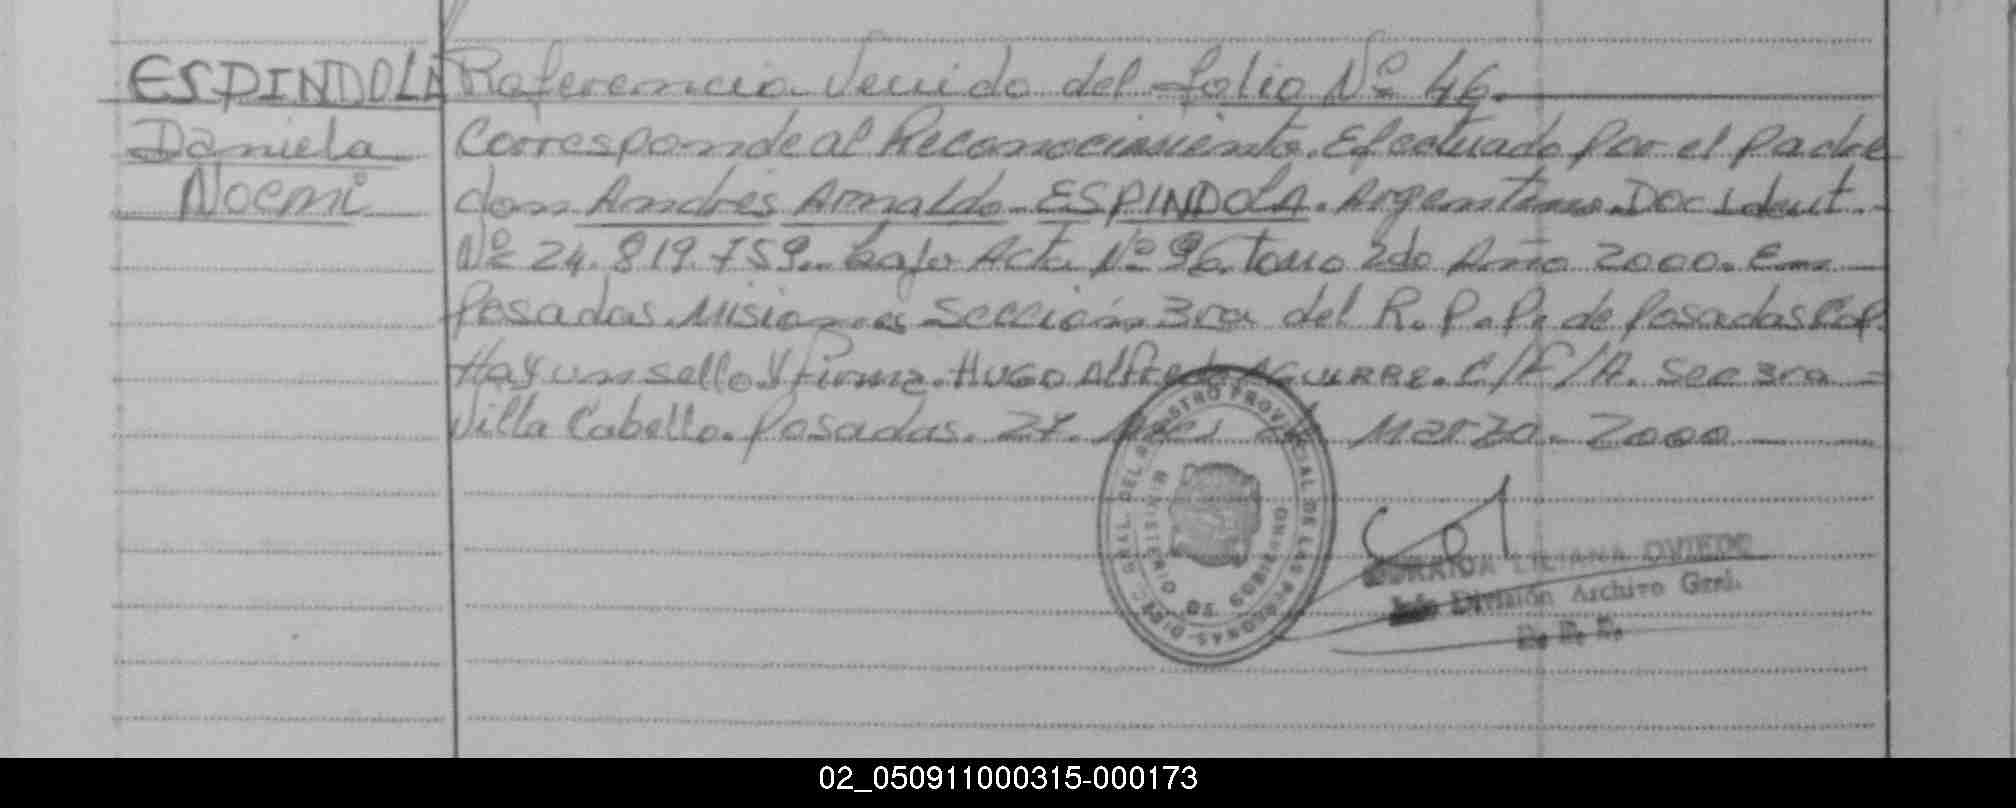 ESPINDOLA Referencia Venido del folio Nº 46.
Daniela Corresponde al Reconocimiento. Efectuado Por el Padre
Noemi don Andrés Arnaldo ESPINDOLA. Argentino. Doc Ident.
Nº 24.819.759. bajo Acta Nº 96 tomo 2do Año 2000. En
Posadas. Misiones Sección 3ra del R. P. P. de Posadas Cap.
Hay un sello y firma. HUGO Alfredo AGUIRRE. C/F/A. Sec 3ra
Villa Cabello. Posadas. 27. Marzo. 2000
DIREC. GRAL. DEL REGISTRO PROVINCIAL DE LAS PERSONAS
MINISTERIO DE GOBIERNO
LILIANA OVIEDO
División Archivo Gral.
02_050911000315-000173